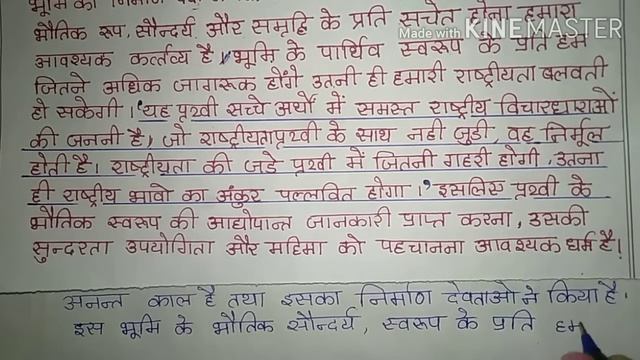 भूमि का निर्माण
भौतिक रूप, सौन्दर्य और समृद्दि के प्रति सचेत होना हमारा
Made with KINEMASTER
आवश्यक कर्तव्य है। भूमि के पार्थिव स्वरूप के प्रति हम
जितने अधिक जागरूक होंगे उतनी ही हमारी राष्ट्रीयता बलवती
हो सकेगी। यह पृथ्वी सच्चे अर्थों में समस्त राष्ट्रीय विचारधाराओं
की जननी है, जो राष्ट्रीयता पृथ्वी के साथ नही जुडी, वह निर्मूल
होती है। राष्ट्रीयता की जडे पृथ्वी में जितनी गहरी होगी, उतना
ही राष्ट्रीय भावो का अंकुर पल्लवित होगा। इसलिए पृथ्वी के
भौतिक स्वरूप की आद्योपान्त जानकारी प्राप्त करना, उसकी
सुन्दरता उपयोगिता और महिमा को पहचानना आवश्यक धर्म है।
अनन्त काल है तथा इसका निर्माण देवताओ ने किया है।
इस भूमि के भौतिक सौन्दर्य, स्वरूप के प्रति हम